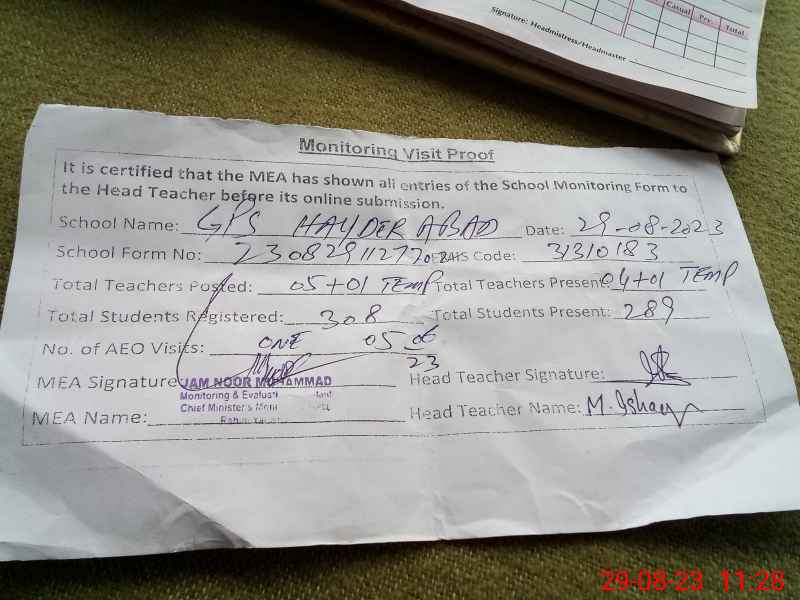 Casual Prv. Total
Signature: Headmistress/Headmaster
Monitoring Visit Proof
It is certified that the MEA has shown all entries of the School Monitoring Form to
the Head Teacher before its online submission.
School Name: GPS HAYDER ABAD Date: 29-08-2023
School Form No: Code: 31310183
Total Teachers Posted: 05+01 TEMP Total Teachers Present: 04+01 TEMP
Total Students Registered: 308 Total Students Present: 289
No. of AEO Visits: ONE 05 06
23
MEA Signature JAM NOOR MUHAMMAD Head Teacher Signature:
Monitoring & Evaluati
Chief Minister's
MEA Name: Head Teacher Name: M. Ishaq
29-08-23 11:28